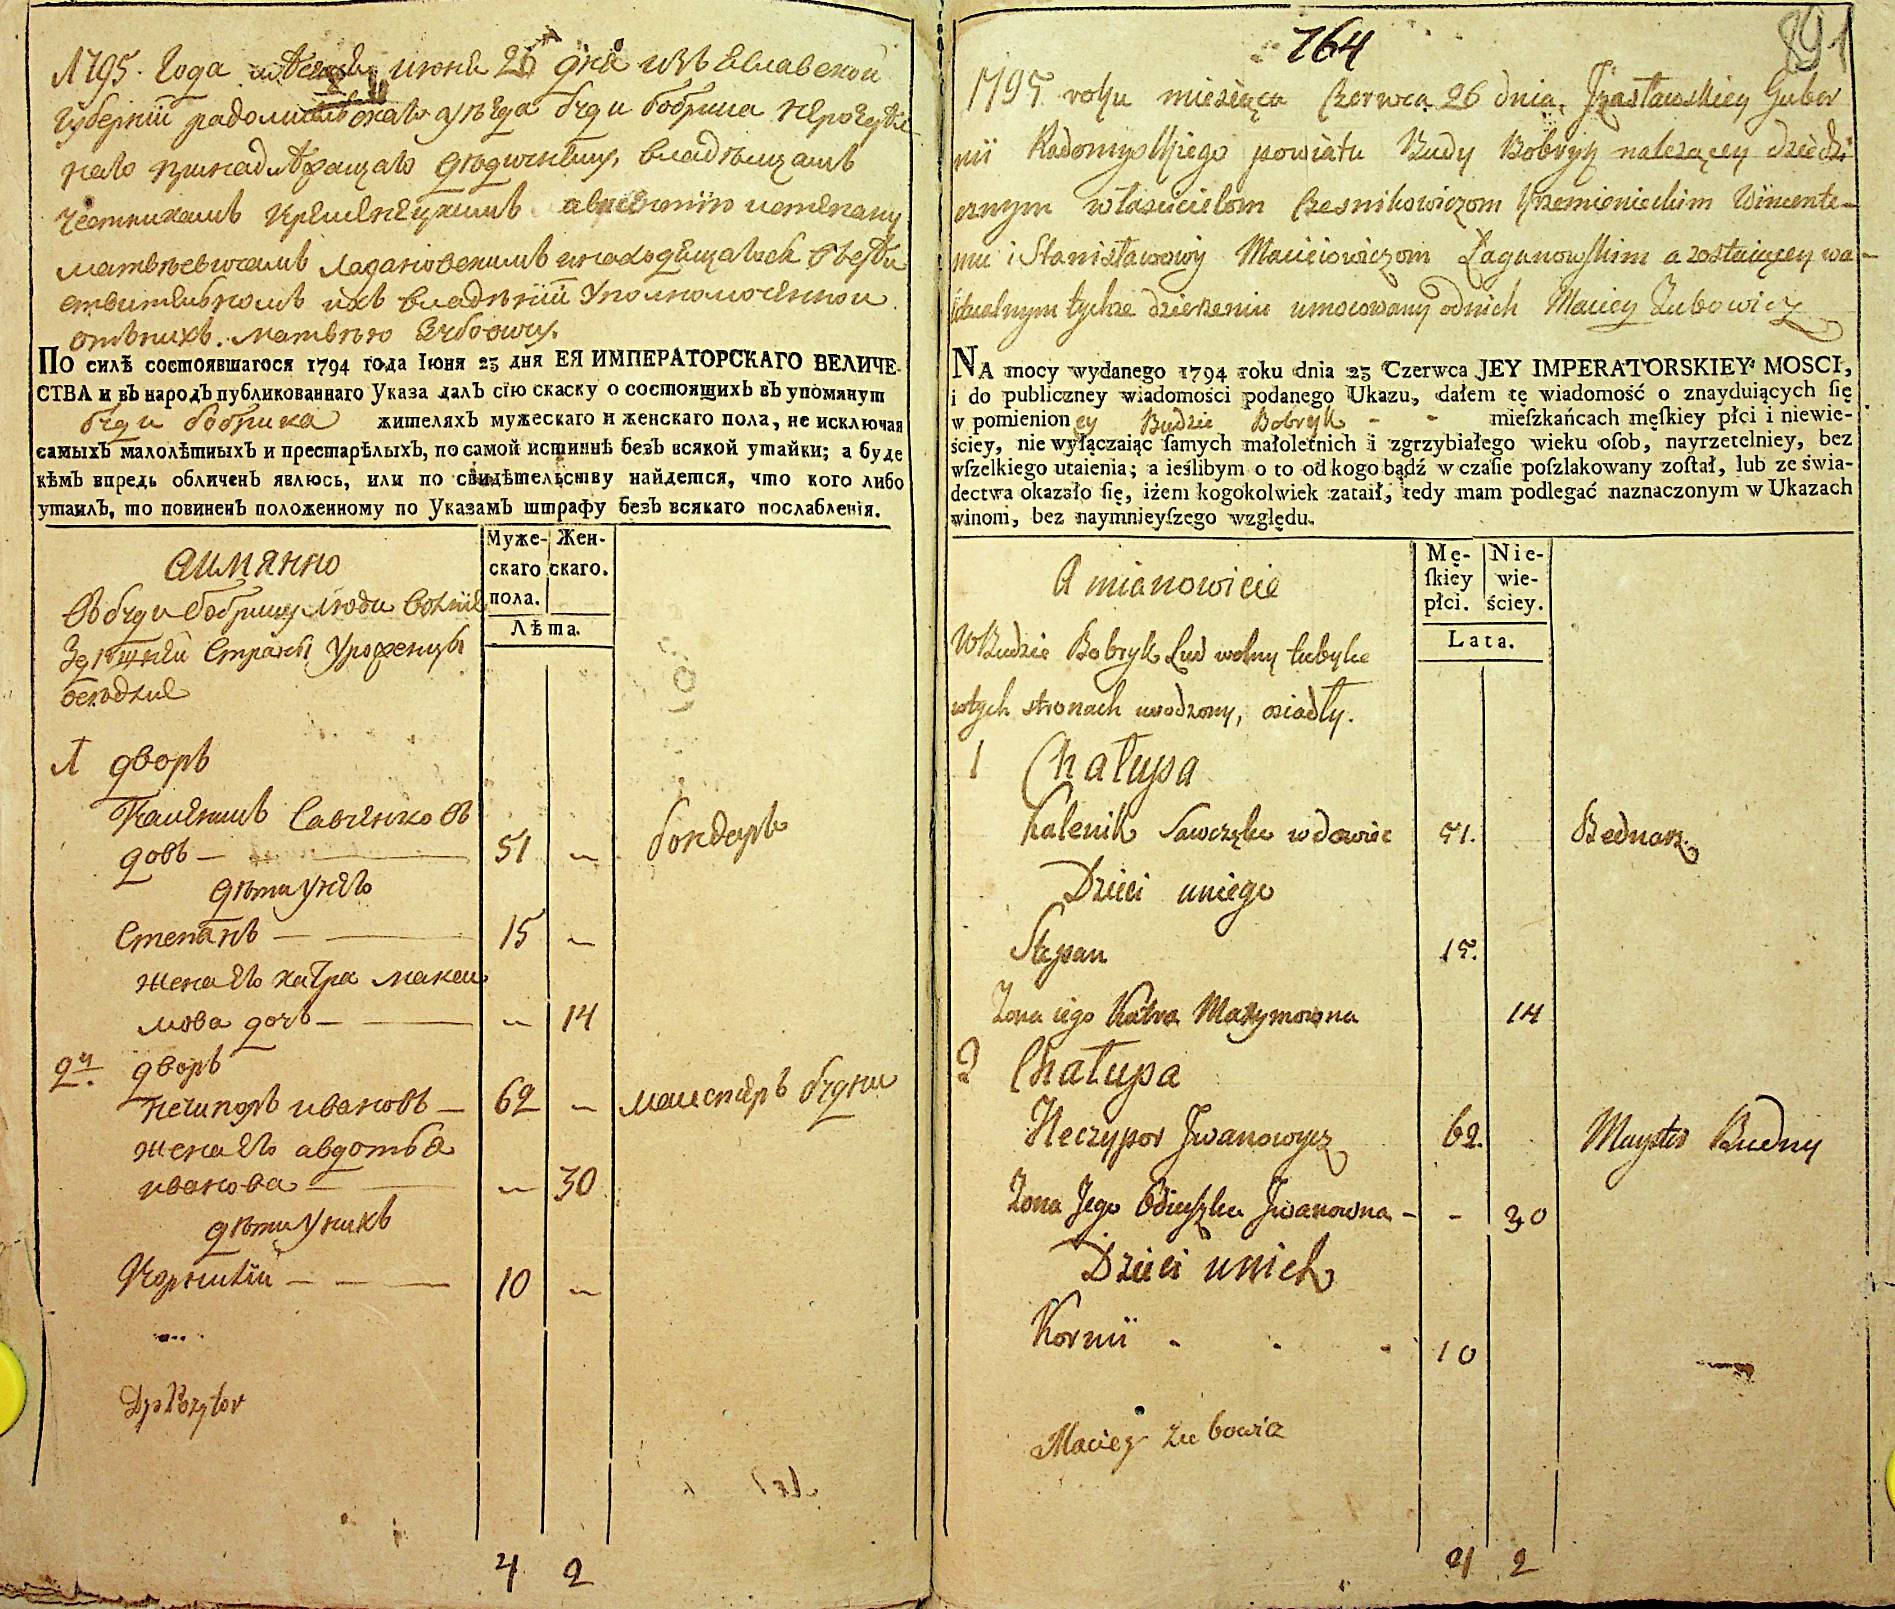 1795. Года июня 26 дня изъ Ёславской
Губерніи радомисльскаго уезда буди бобрика
принадлежащаго владельцамъ
Честникамъ Кременецкимъ
Матвѣевичамъ Лагановскимъ
их владѣніи Уполномоченной
отъ них. Матвѣю Зубовичу.
ПО силѣ состоявшагося 1794 года Іюня 23 дня ЕЯ ИМПЕРАТОРСКАГО ВЕЛИЧЕ-
СТВА и въ народъ публикованнаго Указа далъ сію скаску о состоящихъ въ упомянут
буди бобрика жителяхъ мужескаго и женскаго пола, не исключая
самыхъ малолѣтныхъ и престарѣлыхъ, по самой истиннѣ безъ всякой утайки; а буде
кѣмъ впредь обличенъ явлюсь, или по свидѣтельству найдется, что кого либо
утаилъ, то повиненъ положенному по Указамъ штрафу безъ всякаго послабленія.
Муже- Жен-
скаго скаго.
пола.
Лѣта.
Аимянно
Въ буди бобрику люди волніе
Здѣшней Страны Уроженцы
оселдлие
1 дворъ
Каленикъ Савченко въ
довъ — 51 — бондаръ
дѣти у него
Степанъ — 15 —
жена его катра макси
мова дочь — — 14
2й. дворъ
Нечипоръ ивановъ — 62 — маистеръ будни
жена его авдотья
иванова — — 30
дѣти у нихъ
Корнией — — — 10 —
4 2
764
891
1795 roku miesiąca Czerwca 26 dnia, Izasławskiey Guber
nii Radomyslskiego powiatu Budy Bobryk należącey dziedzi
cznym właścicielom Czesnikowiczom Krzemienieckim Wincente-
mu i Stanisławowy Macieiowiczom Łaganowskim a zostaiącey wa-
ktualnym tychże dzierżeniu umocowany odnich Maciey Zubowicz
NA mocy wydanego 1794 roku dnia 23 Czerwca JEY IMPERATORSKIEY MOSCI,
i do publiczney wiadomości podanego Ukazu, dałem tę wiadomość o znayduiących ſię
w pomienioney Budzie Bobryk - - mieſzkańcach męſkiey płci i niewie-
ściey, nie wyłączaiąc ſamych małoletnich i zgrzybiałego wieku oſob, nayrzetelniey, bez
wſzelkiego utaienia; a ieślibym o to od kogo bądź w czaſie poſzlakowany zoſtał, lub ze świa-
dectwa okazało ſię, iżem kogokolwiek zataił, tedy mam podlegać naznaczonym w Ukazach
winom, bez naymnieyſzego względu.
Mę- Nie-
ſkiey wie-
płci. ściey.
Lata.
A mianowicie
W Budzie Bobryk Lud wolny tubylce
wtych stronach urodzony, osiadły.
1 Chałupa
Kalenik Sawczęko wdowiec 51. Bednarz
Dzieci uniego
Stepan 15.
Zona iego Katra Maxymowna 14
2 Chałupa
Neczypor Jwanowycz 62. Mayster Budny
Zona Jego Jwanowna - - 30
Dzieci unich
Kornii - - - 10
Maciey Zubowicz
4 2